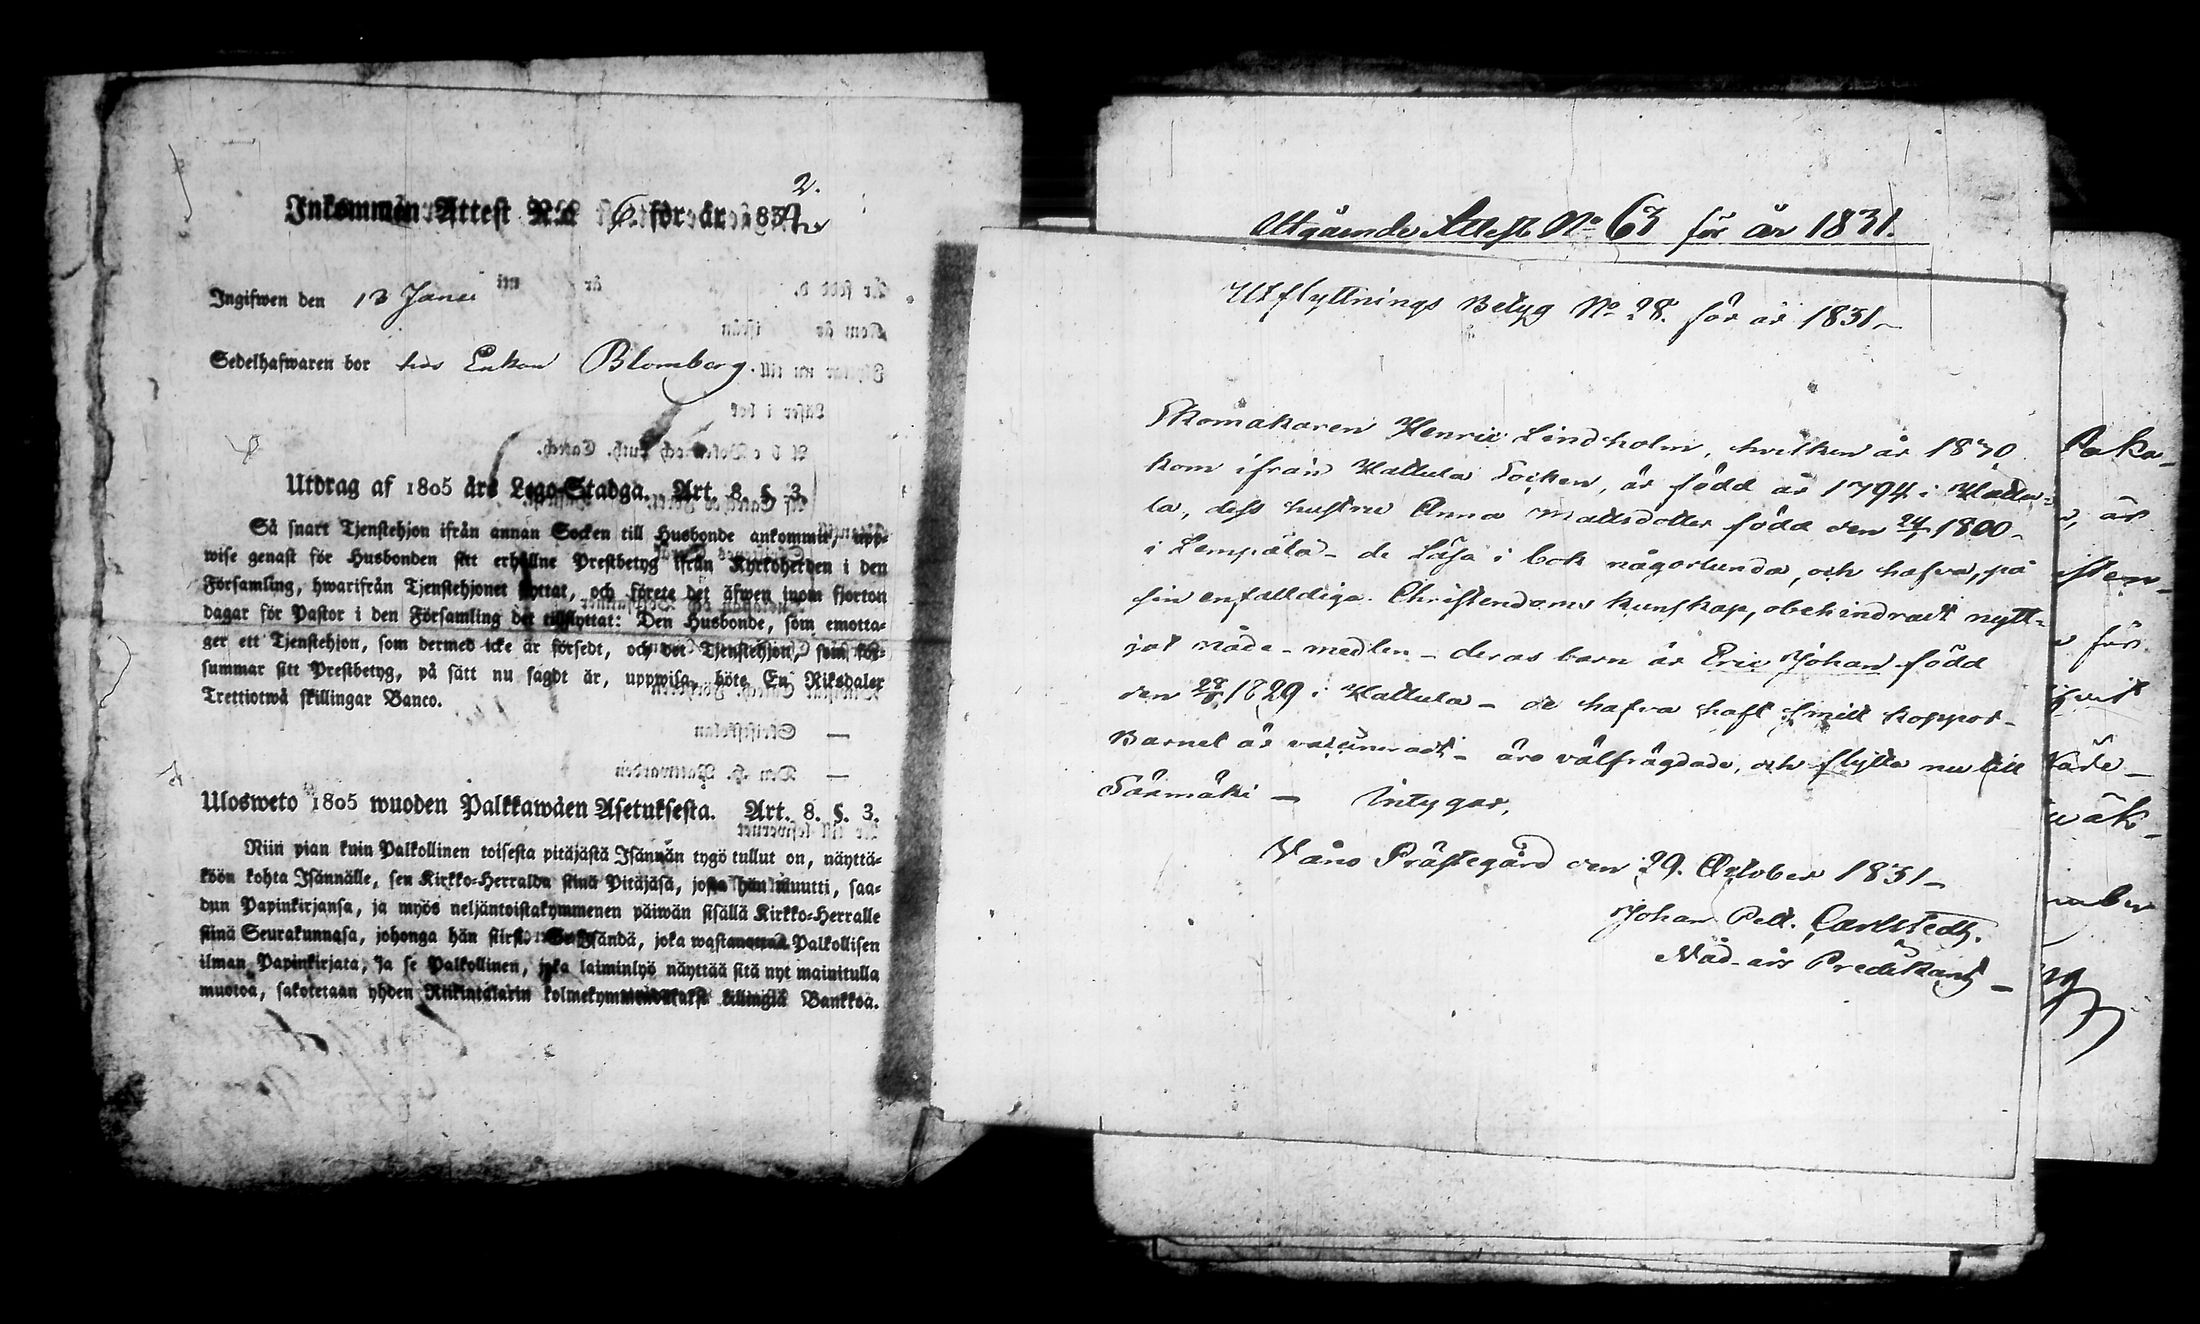 2.
Inkommen Attest N:o 6 för år 183
Ingifwen den 13 Janu
Sedelhafwaren bor hos Enkan Blomberg.
Utdrag af 1805 års Lego-Stadga. Art. 8. §. 3.
Så snart Tjenstehjon ifrån annan Socken till Husbonde ankommit, upp-
wise genast för Husbonden sitt erhållne Prestbetyg ifrån Kyrkoherden i den
Församling, hwarifrån Tjenstehjonet flyttat, och förete det äfwen inom fjorton
dagar för Pastor i den Församling det tillflyttat: Den Husbonde, som emotta-
ger ett Tjenstehjon, som dermed icke är försedt, och det Tjenstehjon, som för-
summar sitt Prestbetyg, på sätt nu sagdt är, uppwisa, böte En Riksdaler
Trettiotwå skillingar Banco.
Ulosweto 1805 wuoden Palkkawäen Asetuksesta. Art. 8. §. 3.
Niin pian kuin Palkollinen toisesta pitäjästä Isännän tygö tullut on, näyttä-
köön kohta Isännälle, sen Kirkko-Herralda siinä Pitäjäsä, josta hän muutti, saa-
dun Papinkirjansa, ja myös neljäntoistakymmenen päiwän sisällä Kirkko-Herralle
siinä Seurakunnasa, johonga hän siirsi. Se Isändä, joka wastanottaa Palkollisen
ilman Papinkirjata, ja se Palkollinen, joka laiminlyö näyttää sitä nyt mainitulla
muotoa, sakotetaan yhden Riikintalarin kolmekymmendäkaksi killingiä Bankkoa.
Utgående Attest No 63 för år 1831.
Utflyttnings Betyg No 28. för år 1831-
Skomakaren Henric Lindholm, hvilken år 1830
kom ifrån Hattula Socken, är född år 1794 i Hattu-
la, dess hustru Anna Mattsdotter född den 24/1 1800-
i Lempälä - de läsa i bok någorlunda, och hafva, på
sin enfalldiga Christendoms kunskap, obehindradt nytt-
jat nåde-medlen - deras barn är Eric Johan född
den 28/8 1829 i Hattula - de hafva haft smitt koppor-
Barnet är vaccineradt - äro välfrägdade, och flytta nu till
Särmäki - Intygar,
Vånå Prästegård den 29. October 1831-
Johan Pett. Carlstedt.
Nåd-års Predikant -
aka-
, är
isten-
för
Nåde-
wäk-
mber